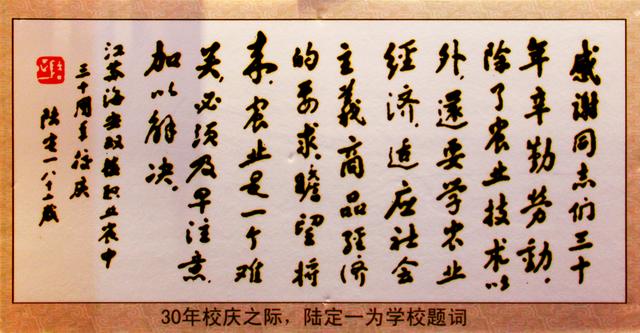 感谢同志们三十
年辛勤劳动，
除了农业技术以
外，還要学农业
經济，适应社会
主義商品経济
的要求，瞻望将
来，农业是一个难
关，必须及早注意，
加以解决。
江苏海安双楼职业农中
三十周年校庆
陆定一八十二歲
30年校庆之际，陆定一为学校题词